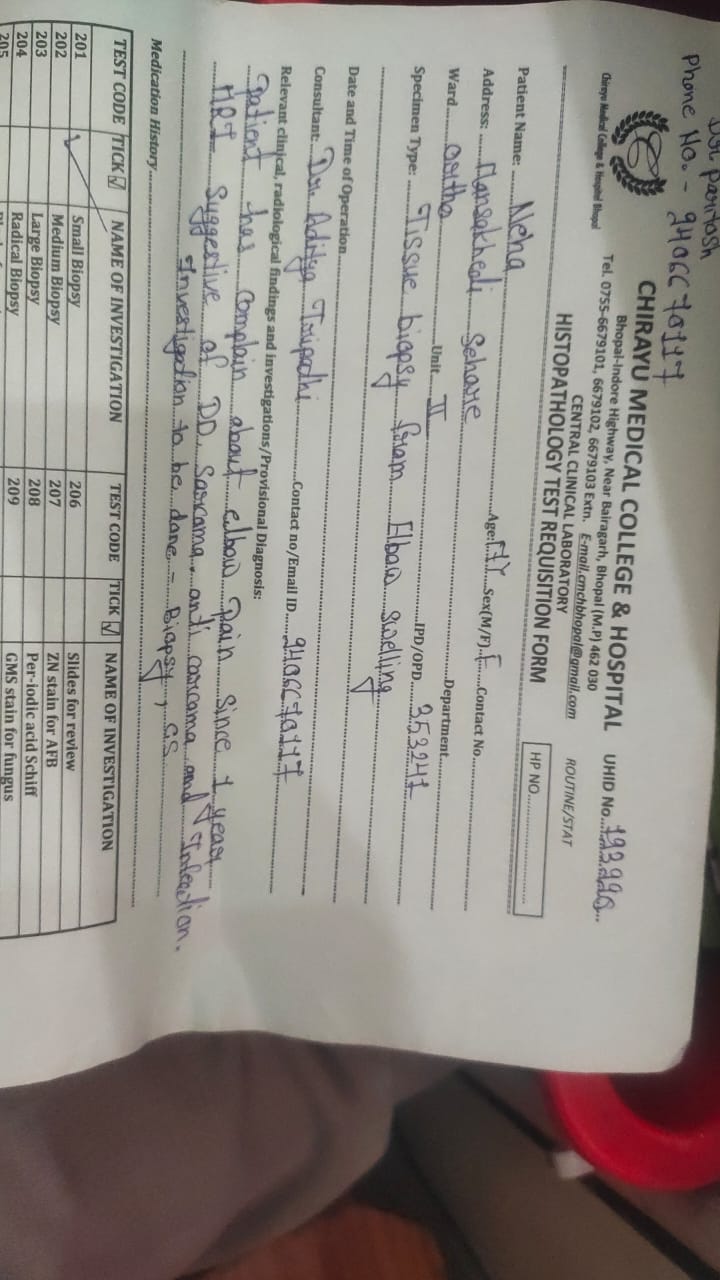 Phone No. - 9406670117
CHIRAYU MEDICAL COLLEGE & HOSPITAL
Bhopal-Indore Highway, Near Bairagarh, Bhopal (M.P) 462 030
Chirayu Medical College & Hospital Bhopal
Tel. 0755-6679101, 6679102, 6679103 Extn. E-mail.cmchbhopal@gmail.com
UHID No.
CENTRAL CLINICAL LABORATORY
ROUTINE/STAT
HISTOPATHOLOGY TEST REQUISITION FORM
HP NO.
Patient Name: Neha Age: Sex(M/F). F Contact No
Address: Mansakhedi Sehore
Ward Ortho Unit II Department
Specimen Type: Tissue biopsy from Elbow swelling IPD/OPD 353241
Date and Time of Operation
Consultant: Dr. Aditya Tripathi Contact no/Email ID 9406670117
Relevant clinical, radiological findings and investigations/Provisional Diagnosis:
Patient has complain about elbow pain since 1 year
MRI suggestive of DD sarcoma and Infection.
Investigation to be done - Biopsy, CS
Medication History
TEST CODE TICK ☑ NAME OF INVESTIGATION TEST CODE TICK ☑ NAME OF INVESTIGATION
201 ✓ Small Biopsy 206 Slides for review
202 Medium Biopsy 207 ZN stain for AFB
203 Large Biopsy 208 Per-iodic acid Schiff
204 Radical Biopsy 209 GMS stain for fungus
205